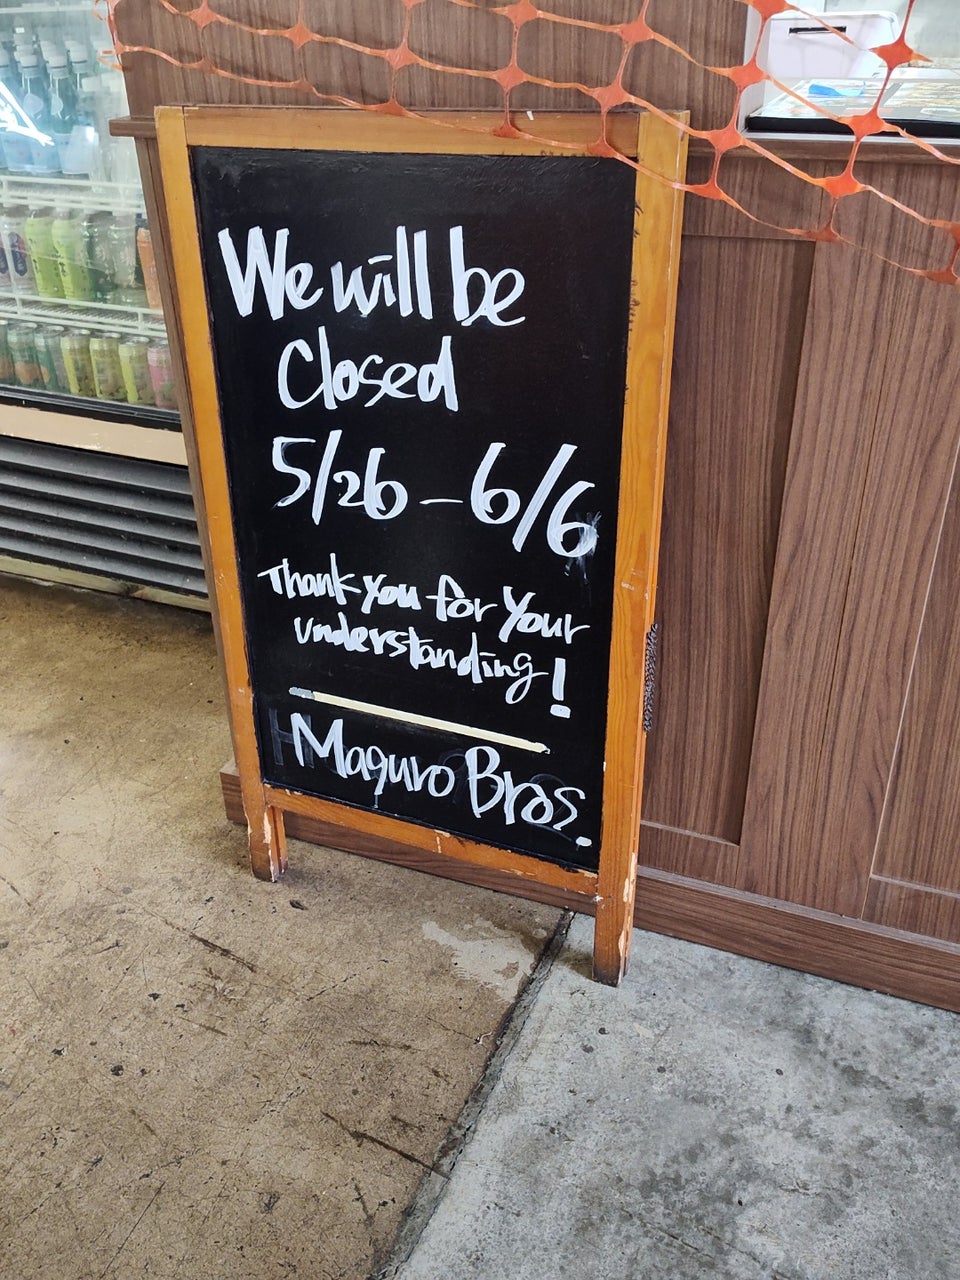 We will be
Closed
5/26 - 6/6
Thank you for Your
understanding!
Maguro Bros.